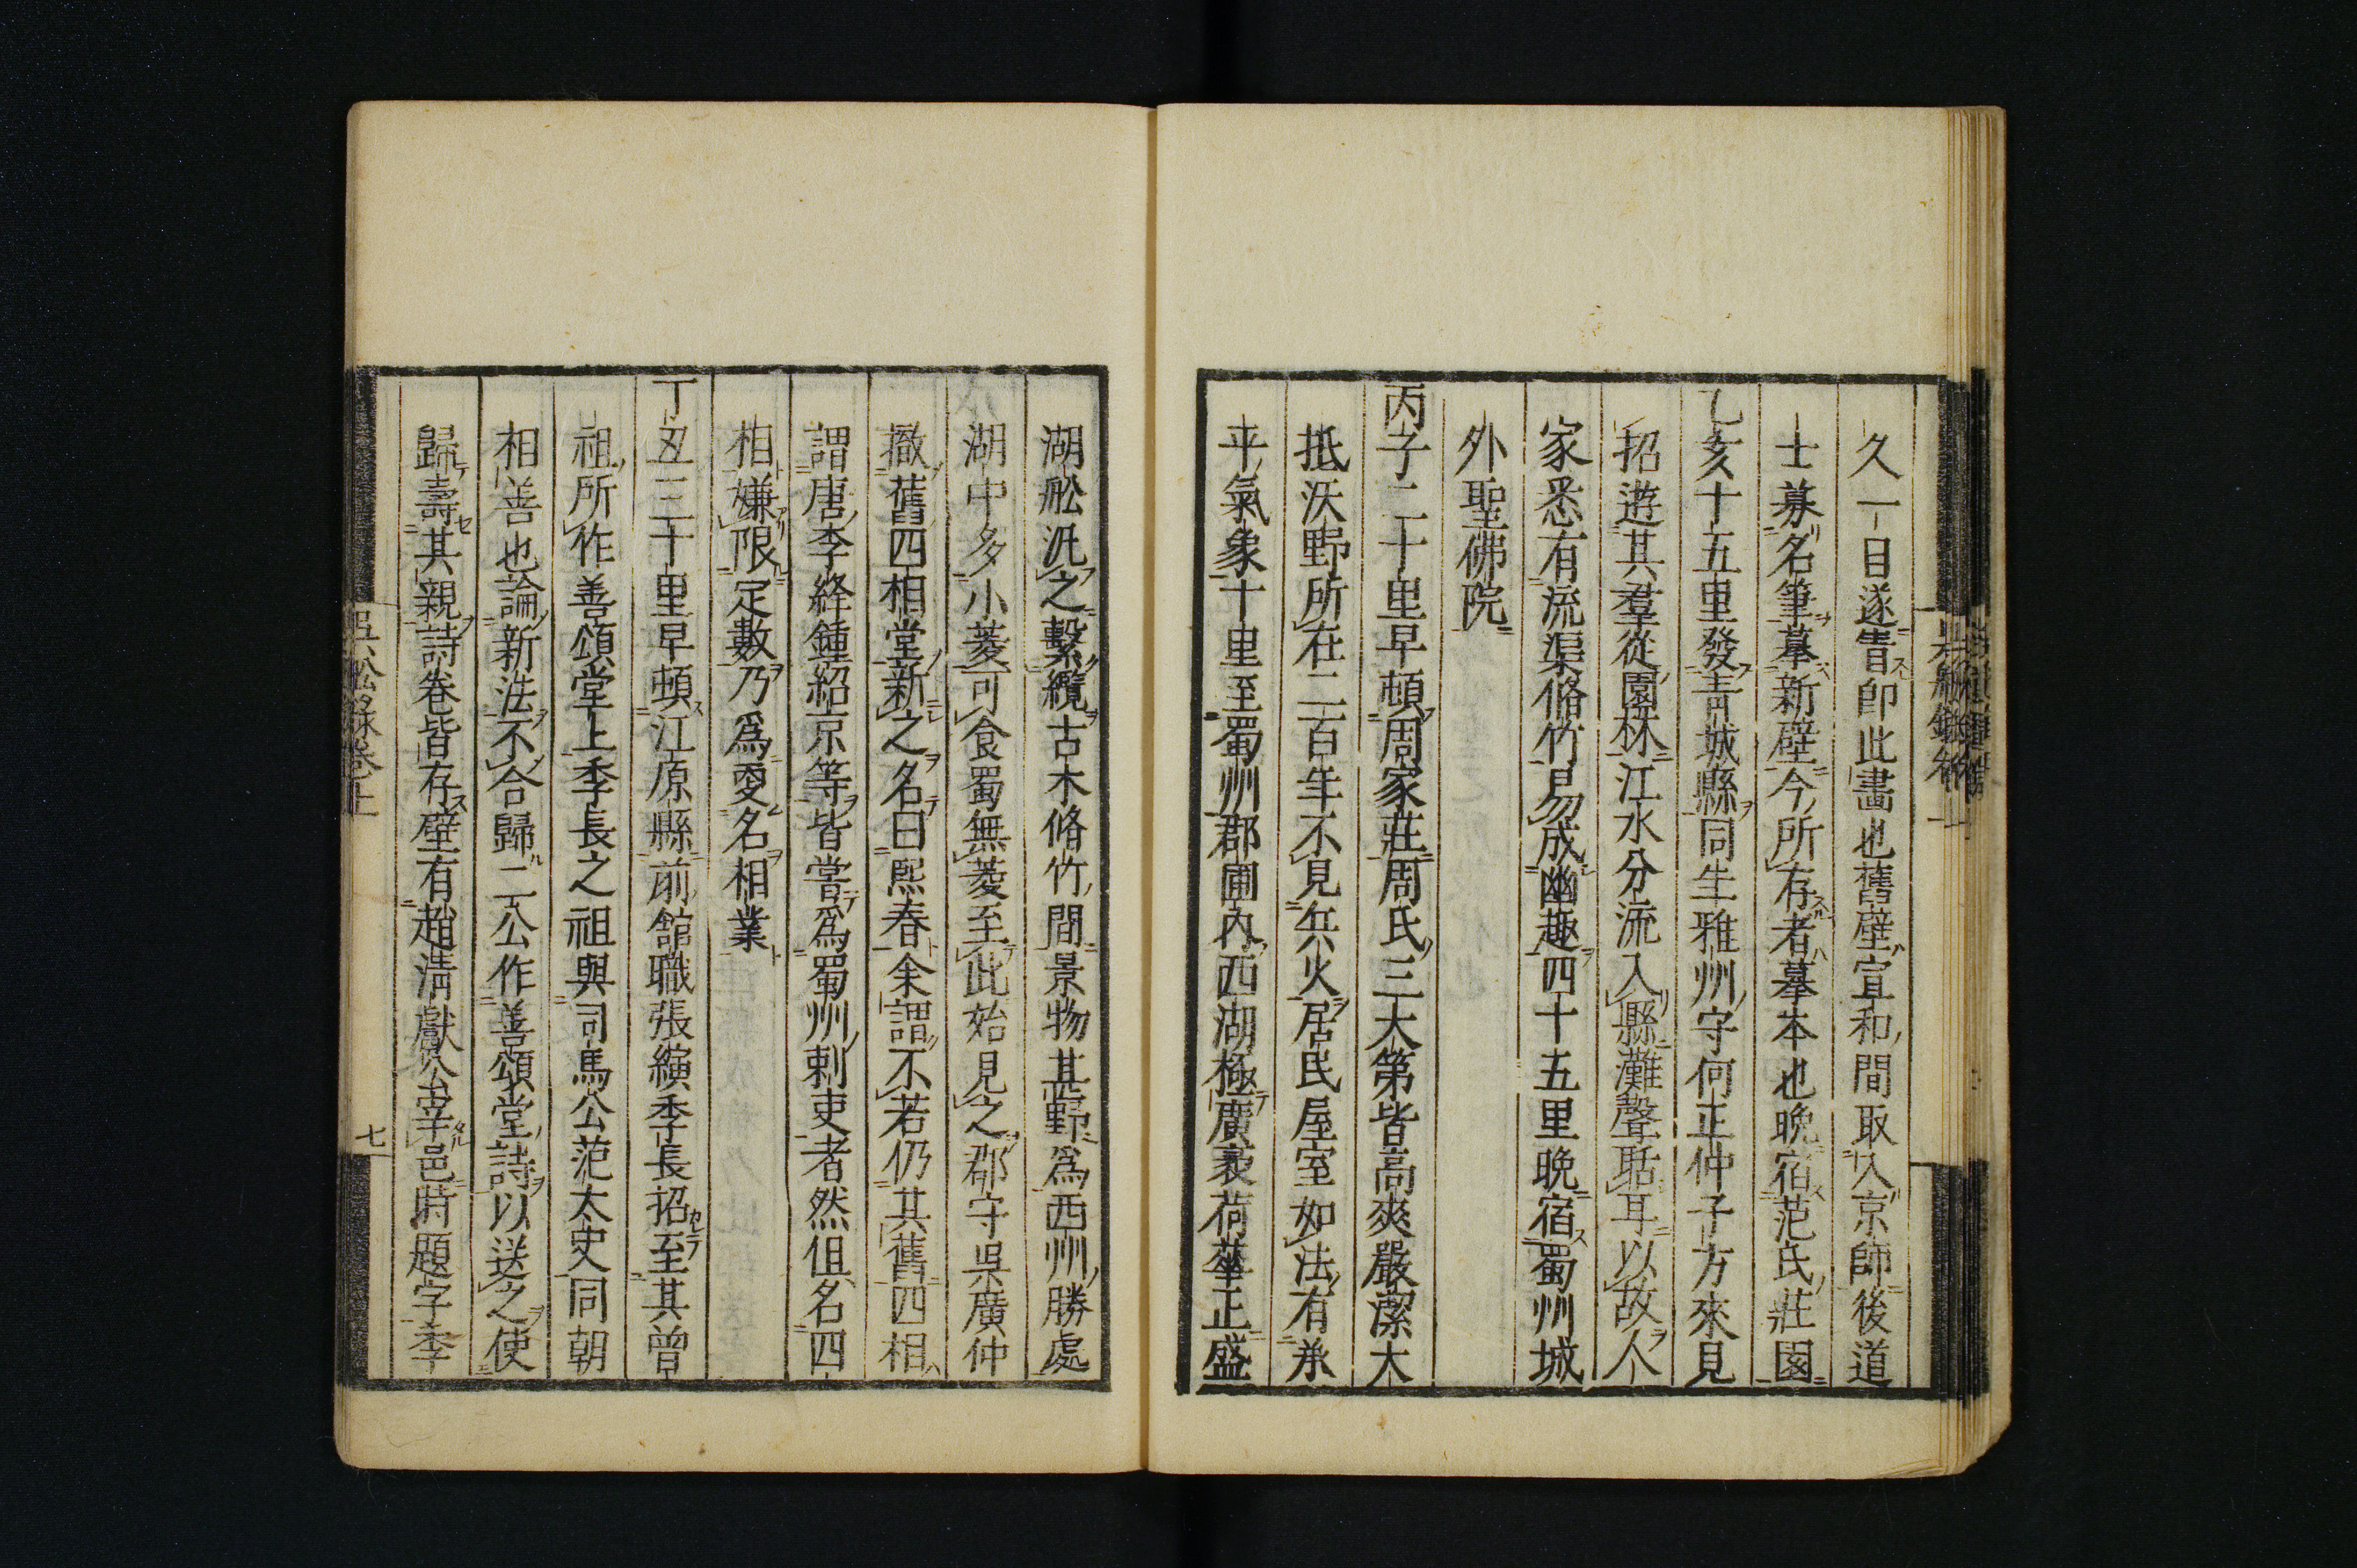 久一目遂眚即此畵也舊壁宣和間取入京師後道
士募名筆摹新壁今所存者摹本也晚宿范氏莊園
乙亥十五里發青城縣同生雅州守何正仲子方來見
招遊其羣從園林江水分流入縣灘聲聒耳以故人
家悉有流渠脩竹易成幽趣四十五里晚宿蜀州城
外聖佛院
丙子二十里早頓周家莊周氏三大第皆高爽嚴潔大
抵沃野所在二百年不見兵火居民屋室如法有承
平氣象十里至蜀州郡圃內西湖極廣袤荷華正盛
湖舩汎之繫纜古木脩竹間景物甚野爲西州勝處
湖中多小菱可食蜀無菱至此始見之郡守吳廣仲
撤舊四相堂新之名曰熙春余謂不若仍其舊四相
謂唐李絳鍾紹京等皆嘗爲蜀州刺吏者然但名四
相嫌限定數乃爲更名相業
丁丑三十里早頓江原縣前舘職張縯季長招至其曾
祖所作善頌堂上季長之祖與司馬公范太史同朝
相善也論新法不合歸二公作善頌堂詩以送之使
歸壽其親詩卷皆存壁有趙淸獻公宰邑時題字季
吳舩錄卷上
七